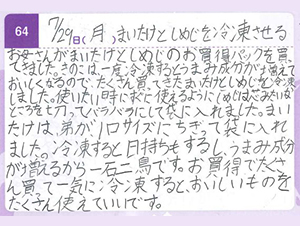 64
7/29日(月)まいたけとしめじを冷凍させる
お母さんがまいたけとしめじのお買得パックを買っ
てきました。きのこは一度冷凍するとうまみ成分が増えて
おいしくなるので、たくさん買ってきたまいたけとしめじを冷凍
しました。使いたい時に楽に使えるようにしめじは石づきみたいな
ところを切ってバラバラにして袋に入れました。まい
たけは、弟が1口サイズにちぎって袋に入れ
ました。冷凍すると日持ちもするし、うまみ成分
が増えるから一石二鳥です。お買得でたくさ
ん買って一気に冷凍すると、おいしいものを
たくさん使えていいです。